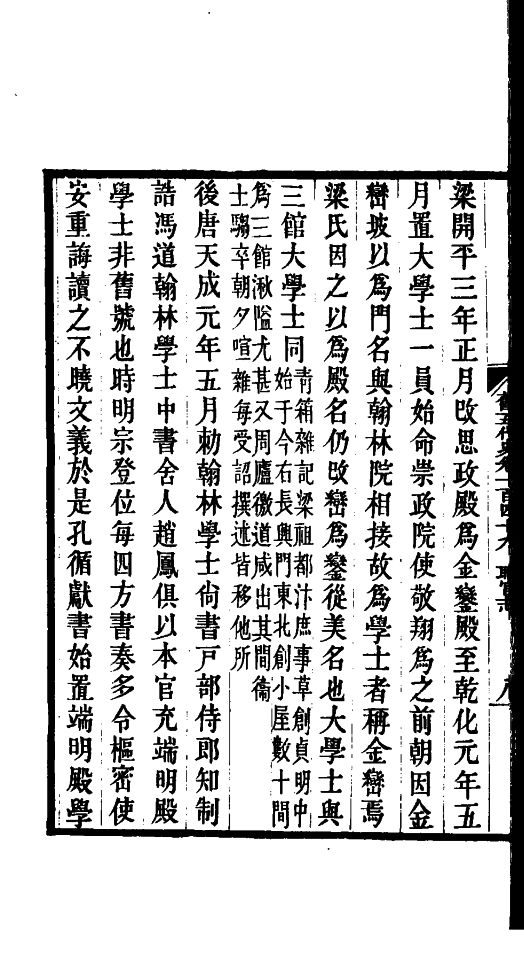 梁開平三年正月改思政殿爲金鑾殿至乾化元年五
月置大學士一員始命崇政院使敬翔爲之前朝因金
巒坡以爲門名與翰林院相接故爲學士者稱金巒焉
梁氏因之以爲殿名仍改巒爲鑾從美名也大學士與
三館大學士同
青箱雜記梁祖都汴庶事草創貞明中
始于今右長興門東北創小屋數十間
爲三館湫隘尤甚又周廬徼道咸出其間衞
士騶卒朝夕喧雜每受詔撰述皆移他所
後唐天成元年五月勅翰林學士尚書戸部侍郎知制
誥馮道翰林學士中書舍人趙鳳俱以本官充端明殿
學士非舊號也時明宗登位每四方書奏多令樞密使
安重誨讀之不曉文義於是孔循獻書始置端明殿學